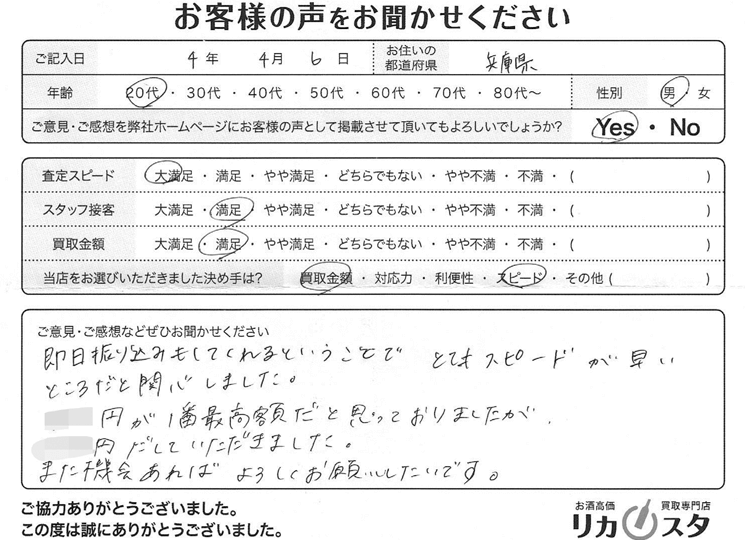 お客様の声をお聞かせください
ご記入日 4年 4月 6日 お住いの都道府県 兵庫県
年齢 20代・30代・40代・50代・60代・70代・80代～ 性別 男・女
ご意見・ご感想を弊社ホームページにお客様の声として掲載させて頂いてもよろしいでしょうか? Yes・No
査定スピード 大満足・満足・やや満足・どちらでもない・やや不満・不満・( )
スタッフ接客 大満足・満足・やや満足・どちらでもない・やや不満・不満・( )
買取金額 大満足・満足・やや満足・どちらでもない・やや不満・不満・( )
当店をお選びいただきました決め手は? 買取金額・対応力・利便性・スピード・その他( )
ご意見・ご感想などぜひお聞かせください
即日振り込みもしてくれるということで とてもスピードが早い
ところだと関心しました。
円が1番最高額だと思っておりましたが、
円だしていただきました。
また機会あれば よろしくお願いしたいです。
ご協力ありがとうございました。
この度は誠にありがとうございました。
お酒高価 買取専門店
リカスタ